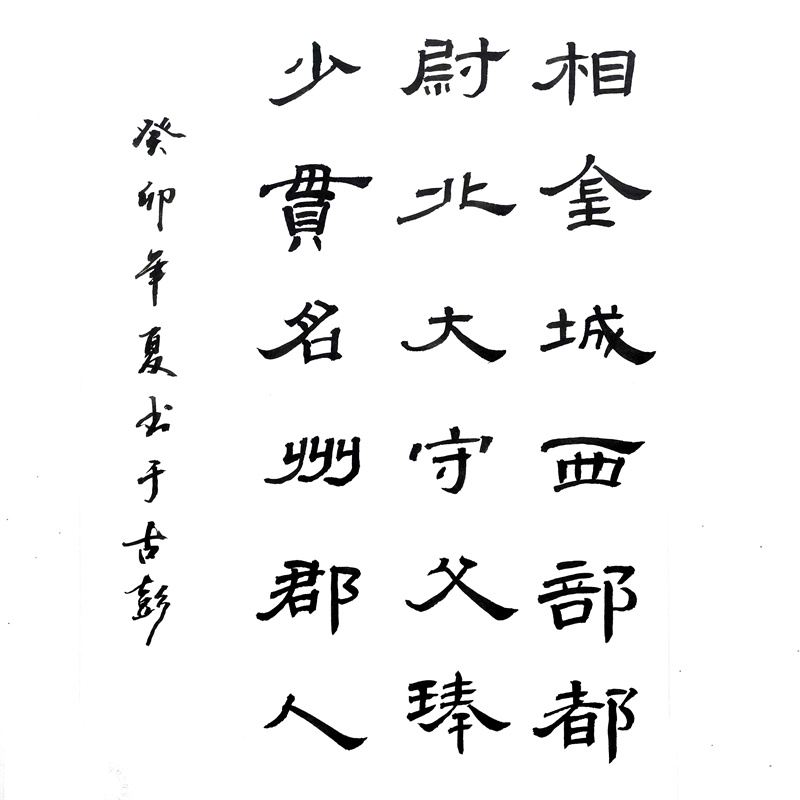 相金城西部都
尉北大守父琫
少貫名州郡人
癸卯年夏书于古彭